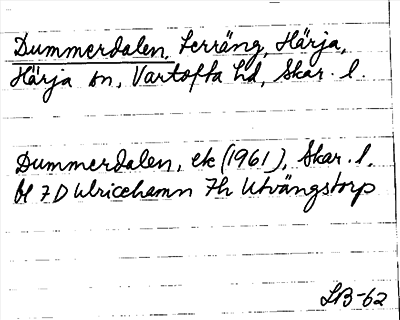 Dummerdalen, terräng, Härja,
Härja sn, Vartofta hd, Skar. l.
Dummerdalen, ek (1961), Skar. l.
bl 7D Ulricehamn 7h Utvängstorp
LB-62